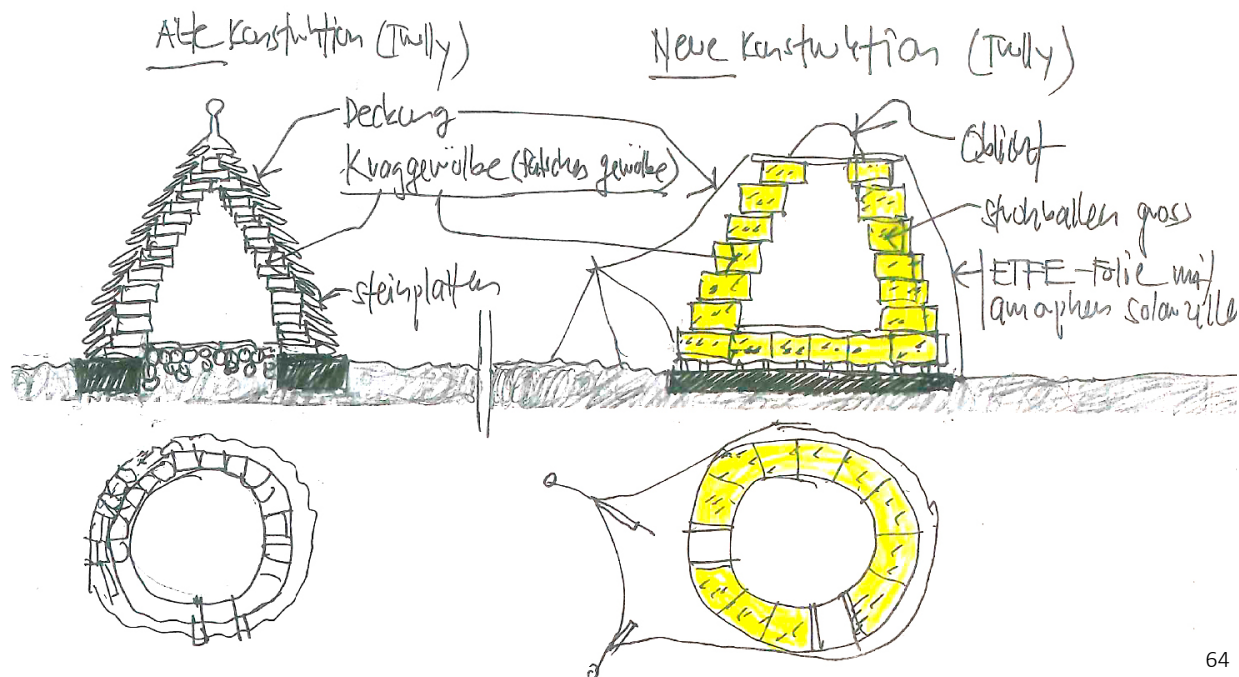 Alte Konstruktion (Trully)
Neue Konstruktion (Trully)
Deckung
Kraggewölbe (falsches gewölbe)
Steinplatten
Oblicht
Strohballen gross
ETFE-Folie mit
amorphen Solarzelle
64